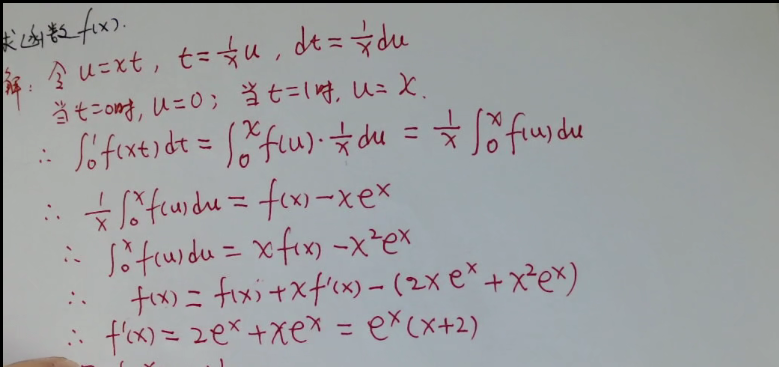 求函数f(x).
解: 令 u=xt, t=\frac{1}{x}u, dt=\frac{1}{x}du
当t=0时, u=0; 当t=1时, u=x.
∴ ∫₀¹f(xt)dt=∫₀ˣf(u)·\frac{1}{x}du=\frac{1}{x}∫₀ˣf(u)du
∴ \frac{1}{x}∫₀ˣf(u)du=f(x)-xeˣ
∴ ∫₀ˣf(u)du=xf(x)-x²eˣ
∴ f(x)=f(x)+xf'(x)-(2xeˣ+x²eˣ)
∴ f'(x)=2eˣ+xeˣ=eˣ(x+2)